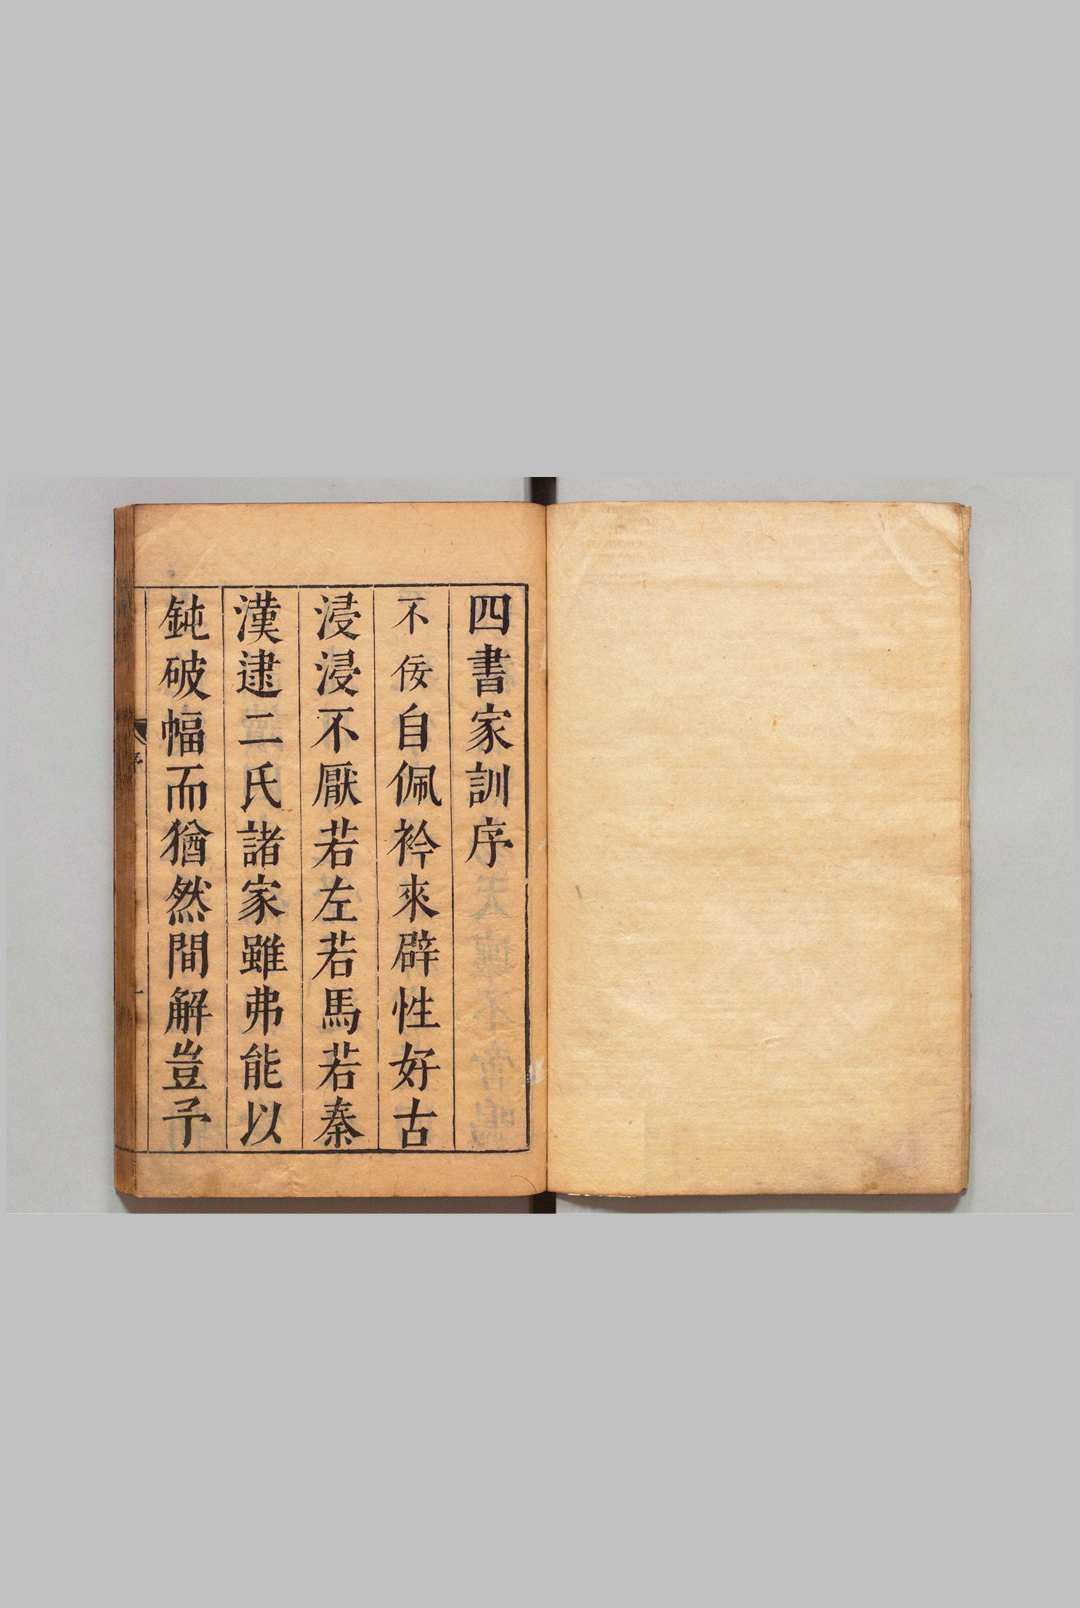 四書家訓序
不佞自佩衿來辟性好古
浸浸不厭若左若馬若秦
漢逮二氏諸家雖弗能以
鈍破幅而猶然間解豈予
序
一